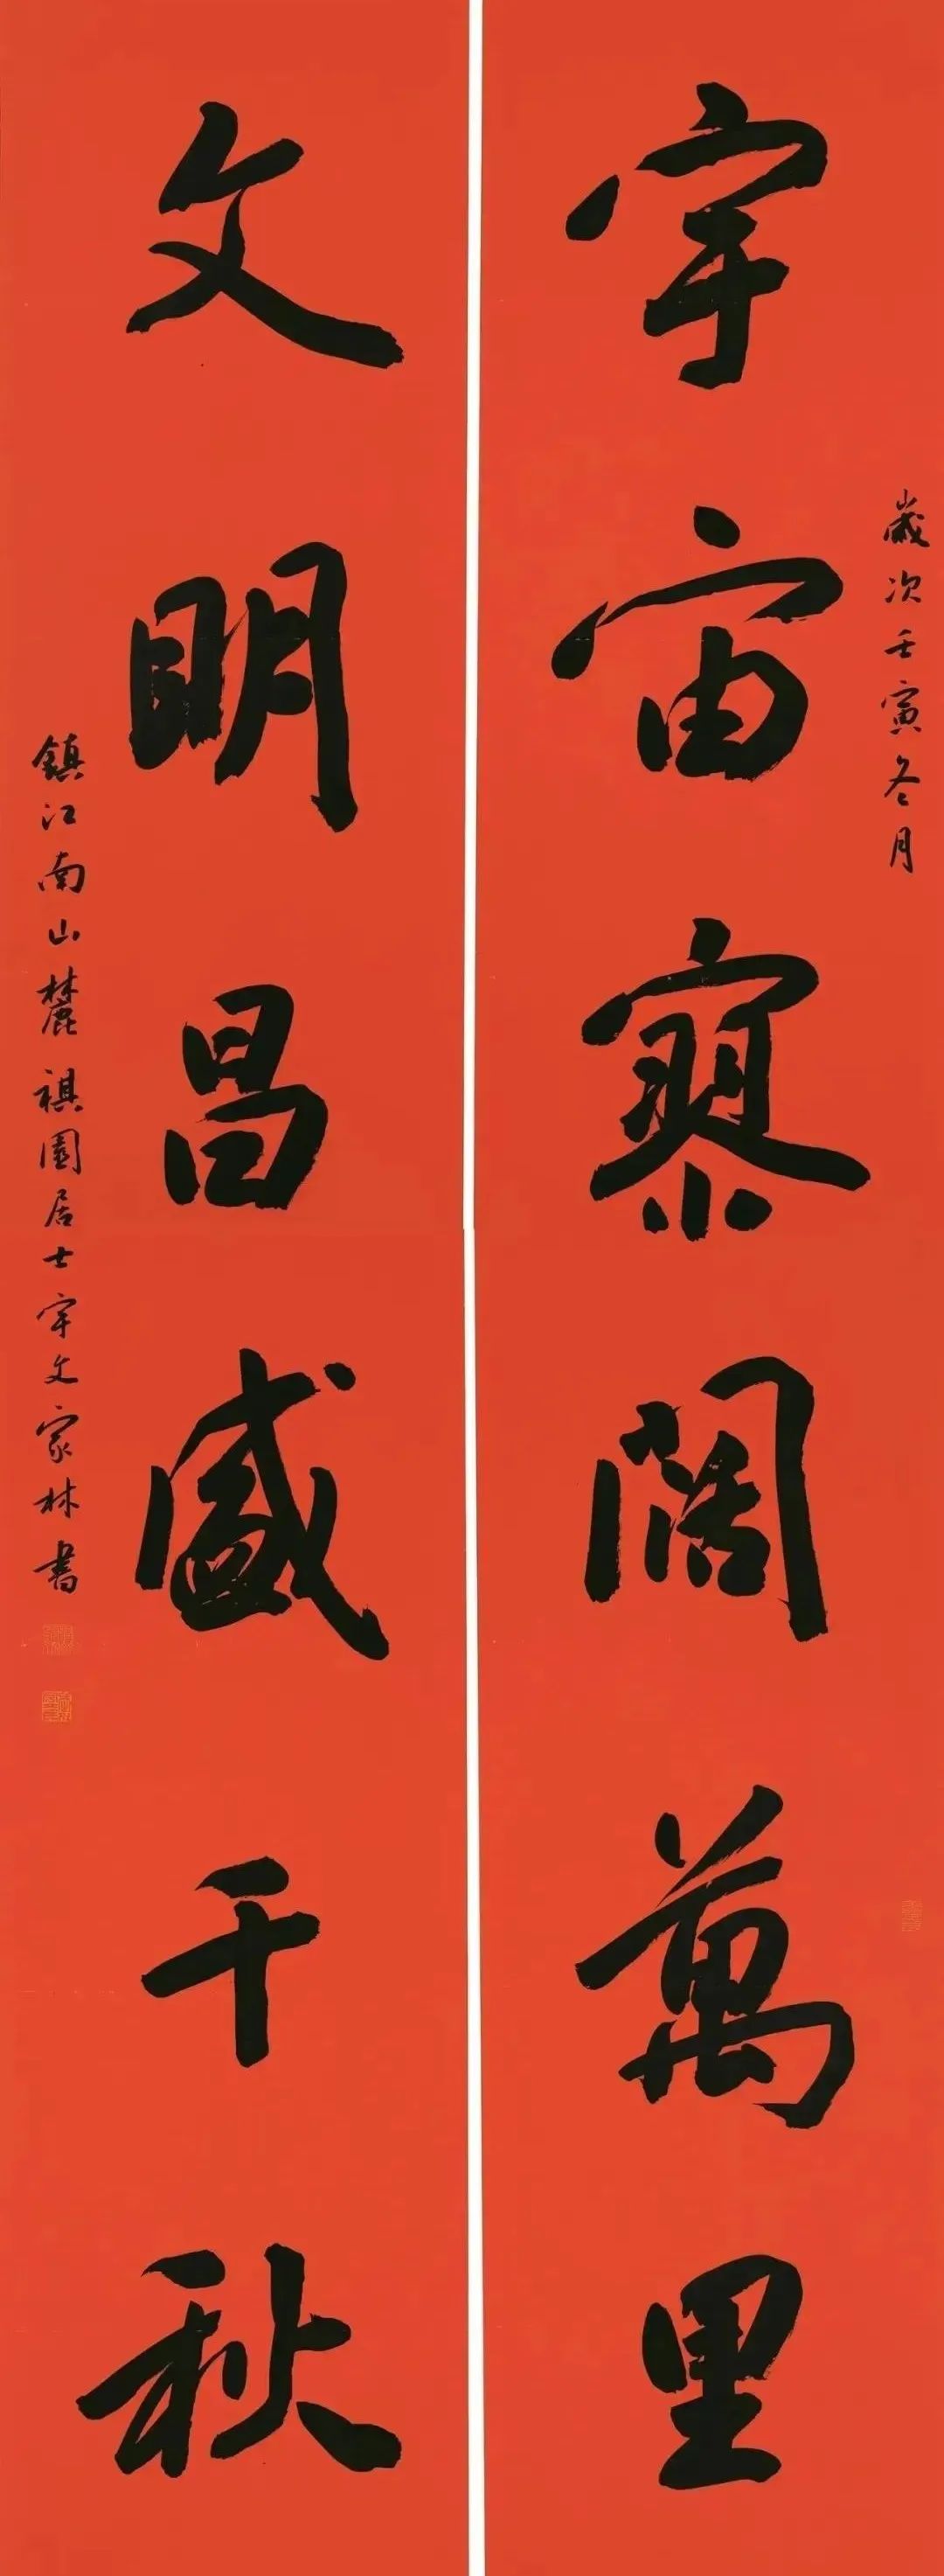 歲次壬寅冬月
宇宙寥闊萬里
文明昌盛千秋
鎮江南山麓祺園居士宇文家林書